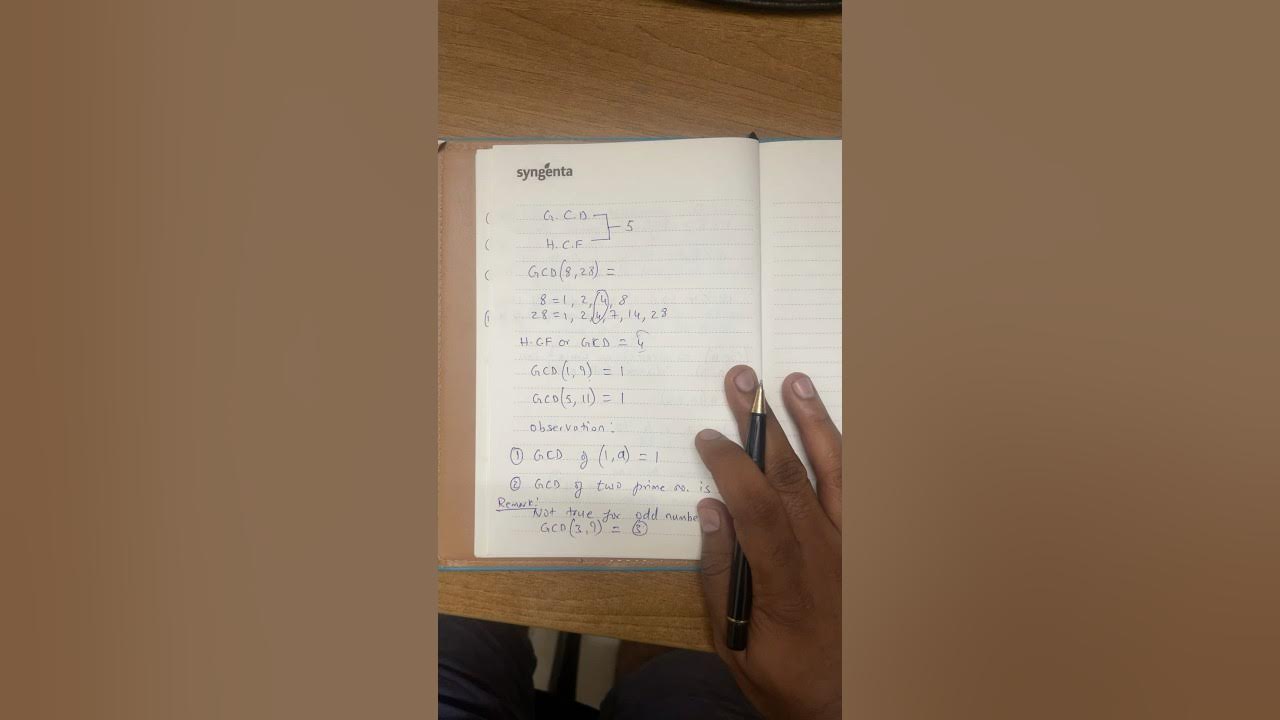 syngenta
G.C.D
5
H.C.F
GCD(8,28) =
8 = 1, 2, 4, 8
28 = 1, 2, 4, 7, 14, 28
H.CF or GCD = 4
GCD(1,9) = 1
GCD(5,11) = 1
Observation:
① GCD of (1,a) = 1
② GCD of two prime no. is
Remark:
Not true for odd numbe
GCD(3,9) = ③